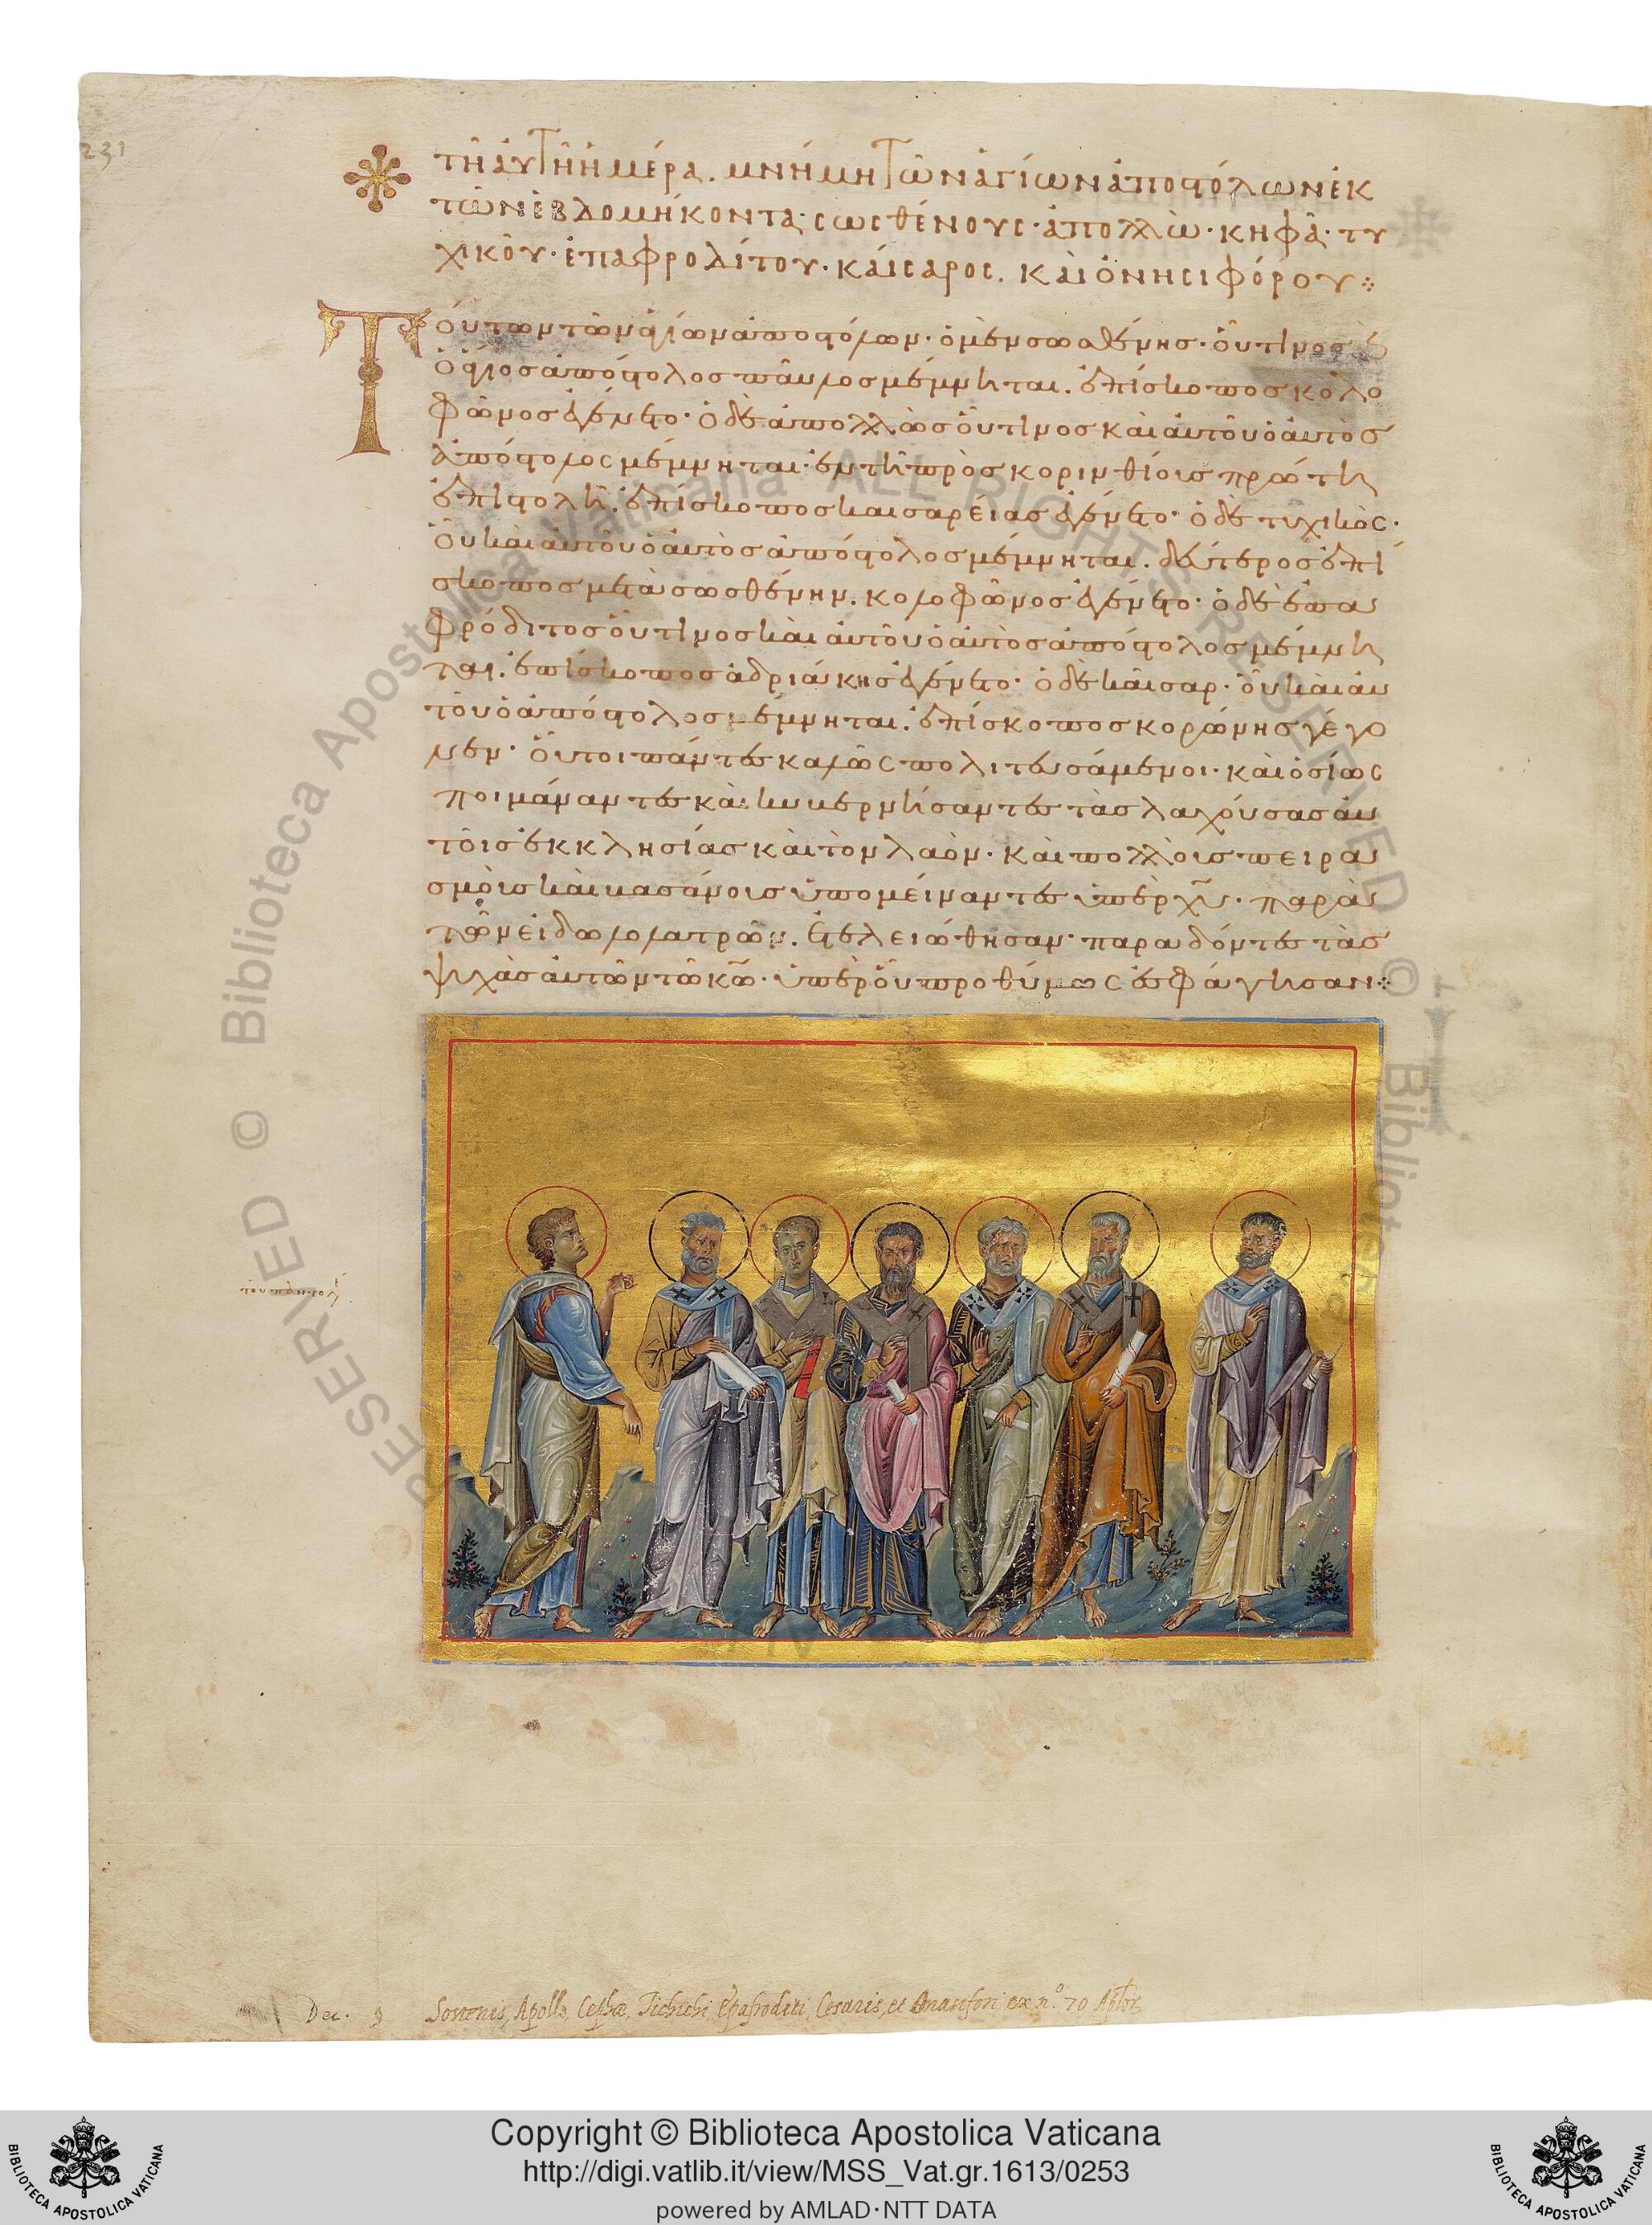 231
τῆ ἀυτῆ ἡμέρα. μνήμη τῶν ἁγίων ἀποϛόλων ἐκ
τῶν ἑβδομήκοντα· σωσθένους· ἀπολλὼ· κηφᾶ· τυ
χικοῦ· ἐπαφροδίτου· καίσαρος. καὶ ὀνησιφόρου·:·
Τούτων τῶν ἁγίων ἀποϛόλων· ὁ μὲν σωσθένης· οὗτινος
ὁ ἅγιος ἀπόϛολος παῦλος μέμνηται. ἐπίσκοπος κολο
φῶνος ἐγένετο· ὁ δὲ ἀπολλὼς οὗτινος καὶ αὐτοῦ ὁ αὐτὸς
ἀπόϛολος μέμνηται· ἐν τῆ πρὸς κορινθίοις πρώτη
ἐπιϛολῆ. ἐπίσκοπος καισαρείας ἐγένετο· ὁ δὲ τυχικὸς·
οὗ καὶ αὐτοῦ ὁ αὐτὸς ἀπόϛολος μέμνηται. δεύτερος ἐπί
σκοπος μετὰ σωσθένην. κολοφῶνος ἐγένετο· ὁ δὲ ἐπα
φρόδιτος οὗτινος καὶ αὐτοῦ ὁ αὐτὸς ἀπόϛολος μέμνη
ται. ἐπίσκοπος ἀδριάκης ἐγένετο· ὁ δὲ καῖσαρ· οὗ καὶ αὐ
τοῦ ὁ ἀπόϛολος μέμνηται. ἐπίσκοπος κορώνης γέγο
νεν· οὗτοι πάντες καλῶς πολιτευσάμενοι· καὶ ὁσίως
ποιμάναντες καὶ κυβερνήσαντες τὰς λαχούσας αὐ
τοῖς ἐκκλησίας καὶ τὸν λαὸν· καὶ πολλοῖς πειρα
σμοῖς καὶ βασάνοις ὑπομείναντες ὑπὲρ χυ· παρὰ
τῶν εἰδωλολατρῶν. ἐτελειώθησαν· παραδόντες τὰς
ψυχὰς αὐτῶν τῶ κω· ὑπὲρ οὗ προθύμως ἐσφάγησαν·:·
Dec. 9 Sostenis, Apollo, Cephæ, Tichichi, Epafroditi, Cesaris, et Onasifori, ex n.º 70 Aplôr
© Biblioteca Apostolica Vaticana ALL RIGHTS RESERVED © Bibliot
RESERVED
Copyright © Biblioteca Apostolica Vaticana
http://digi.vatlib.it/view/MSS_Vat.gr.1613/0253
powered by AMLAD·NTT DATA
BIBLIOTECA APOSTOLICA VATICANA
BIBLIOTECA APOSTOLICA VATICANA